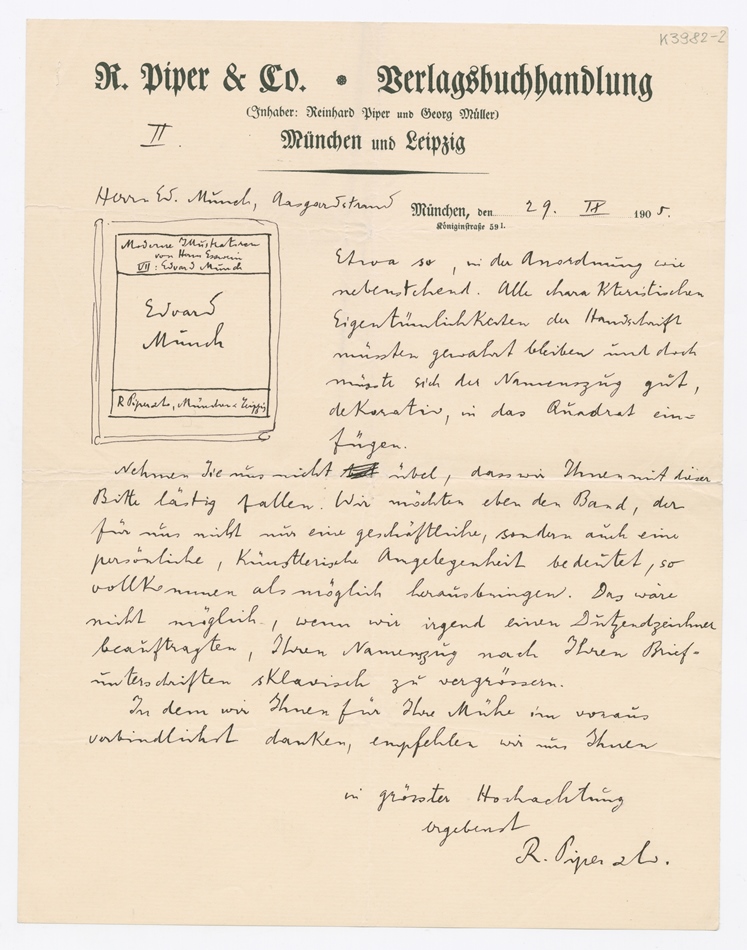 K3982-2
R. Piper & Co. • Verlagsbuchhandlung
(Inhaber: Reinhard Piper und Georg Müller)
II.
München und Leipzig
Herrn Ed. Munch, Aasgardstrand
München, den 29. IX 1905.
Königinstraße 59 I.
Moderne Illustratoren
von Herm Esswein
VII: Edvard Munch
Edvard
Munch
R Piper & Co, München & Leipzig
Etwa so, in der Anordnung wie
nebenstehend. Alle charakteristischen
Eigentümlichkeiten der Handschrift
müssten gewahrt bleiben und doch
müsste sich der Namenszug gut,
dekorativ, in das Quadrat ein=
fügen.
Nehmen Sie uns nicht übel, dass wir Ihnen mit dieser
Bitte lästig fallen. Wir möchten eben den Band, der
für uns nicht nur eine geschäftliche, sondern auch eine
persönliche, künstlerische Angelegenheit bedeutet, so
vollkommen als möglich herausbringen. Das wäre
nicht möglich, wenn wir irgend einen Dutzendzeichner
beauftragten, Ihren Namenszug nach Ihren Brief-
unterschriften sklavisch zu vergrössern.
In dem wir Ihnen für Ihre Mühe im voraus
verbindlichst danken, empfehlen wir uns Ihnen
in grösster Hochachtung
ergebenst
R. Piper & Co.